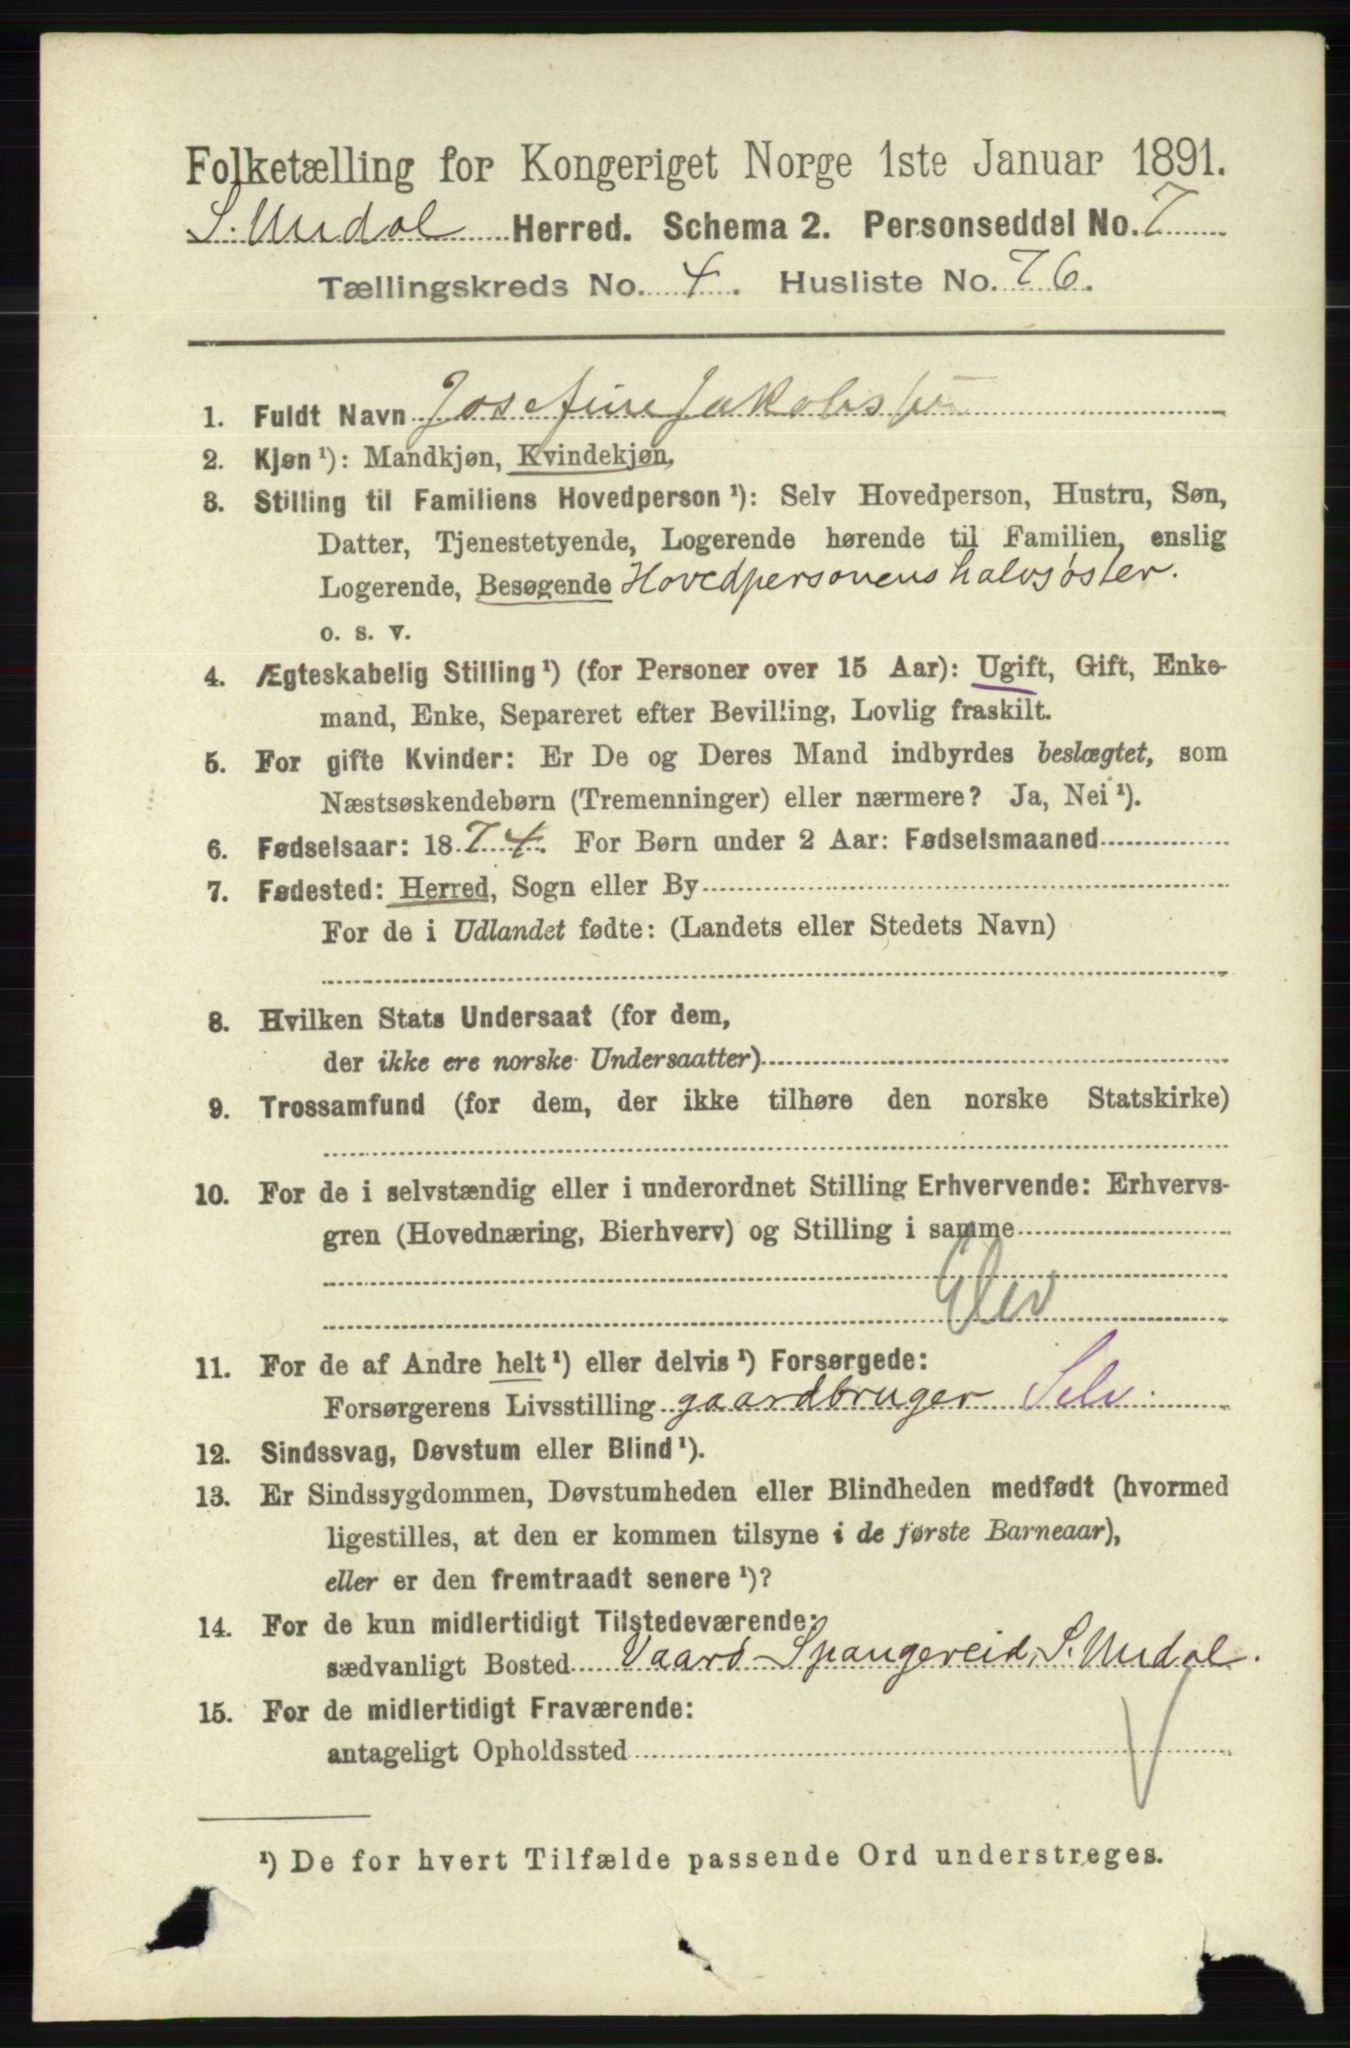 Folketælling for Kongeriget Norge 1ste Januar 1891.
S. Undal Herred. Schema 2. Personseddel No. 7
Tællingskreds No. 4. Husliste No. 76.
1. Fuldt Navn Josefine Jakobs
2. Kjøn ¹): Mandkjøn, Kvindekjøn,
3. Stilling til Familiens Hovedperson ¹): Selv Hovedperson, Hustru, Søn,
Datter, Tjenestetyende, Logerende hørende til Familien, enslig
Logerende, Besøgende Hovedpersonens halvsøster.
o. s. v.
4. Ægteskabelig Stilling ¹) (for Personer over 15 Aar): Ugift, Gift, Enke-
mand, Enke, Separeret efter Bevilling, Lovlig fraskilt.
5. For gifte Kvinder: Er De og Deres Mand indbyrdes beslægtet, som
Næstsøskendebørn (Tremenninger) eller nærmere? Ja, Nei ¹).
6. Fødselsaar: 1874. For Børn under 2 Aar: Fødselsmaaned
7. Fødested: Herred, Sogn eller By
For de i Udlandet fødte: (Landets eller Stedets Navn)
8. Hvilken Stats Undersaat (for dem,
der ikke ere norske Undersaatter)
9. Trossamfund (for dem, der ikke tilhøre den norske Statskirke)
10. For de i selvstændig eller i underordnet Stilling Erhvervende: Erhvervs-
gren (Hovednæring, Bierhverv) og Stilling i samme
Elev
11. For de af Andre helt ¹) eller delvis ¹) Forsørgede:
Forsørgerens Livsstilling gaardbruger Selv.
12. Sindssvag, Døvstum eller Blind ¹).
13. Er Sindssygdommen, Døvstumheden eller Blindheden medfødt (hvormed
ligestilles, at den er kommen tilsyne i de første Barneaar),
eller er den fremtraadt senere ¹)?
14. For de kun midlertidigt Tilstedeværende:
sædvanligt Bosted Vaarø Spangereid, S. Undal.
15. For de midlertidigt Fraværende:
antageligt Opholdssted
¹) De for hvert Tilfælde passende Ord understreges.